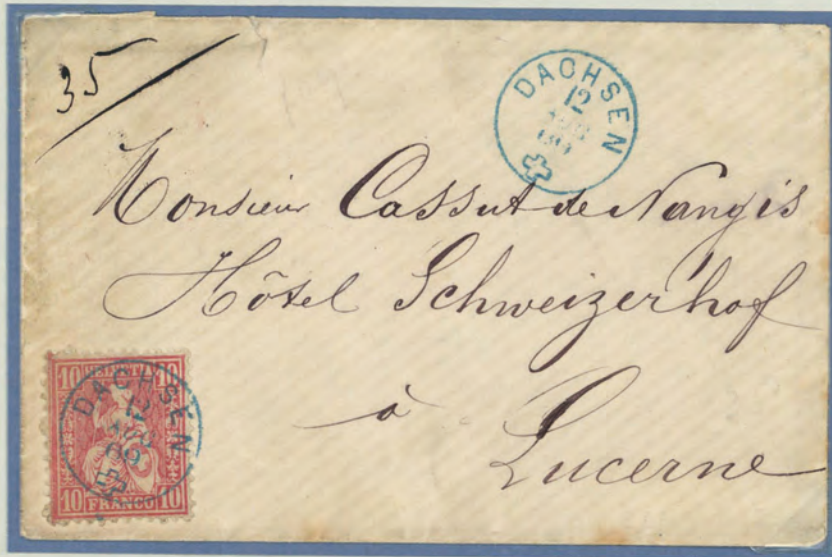 35
DACHSEN
12
Monsieur Cassut de Nangis
Hôtel Schweizerhof
à
Lucerne
10 HELVETIA 10
DACHSEN
12
AUG
69
10 FRANCO 10